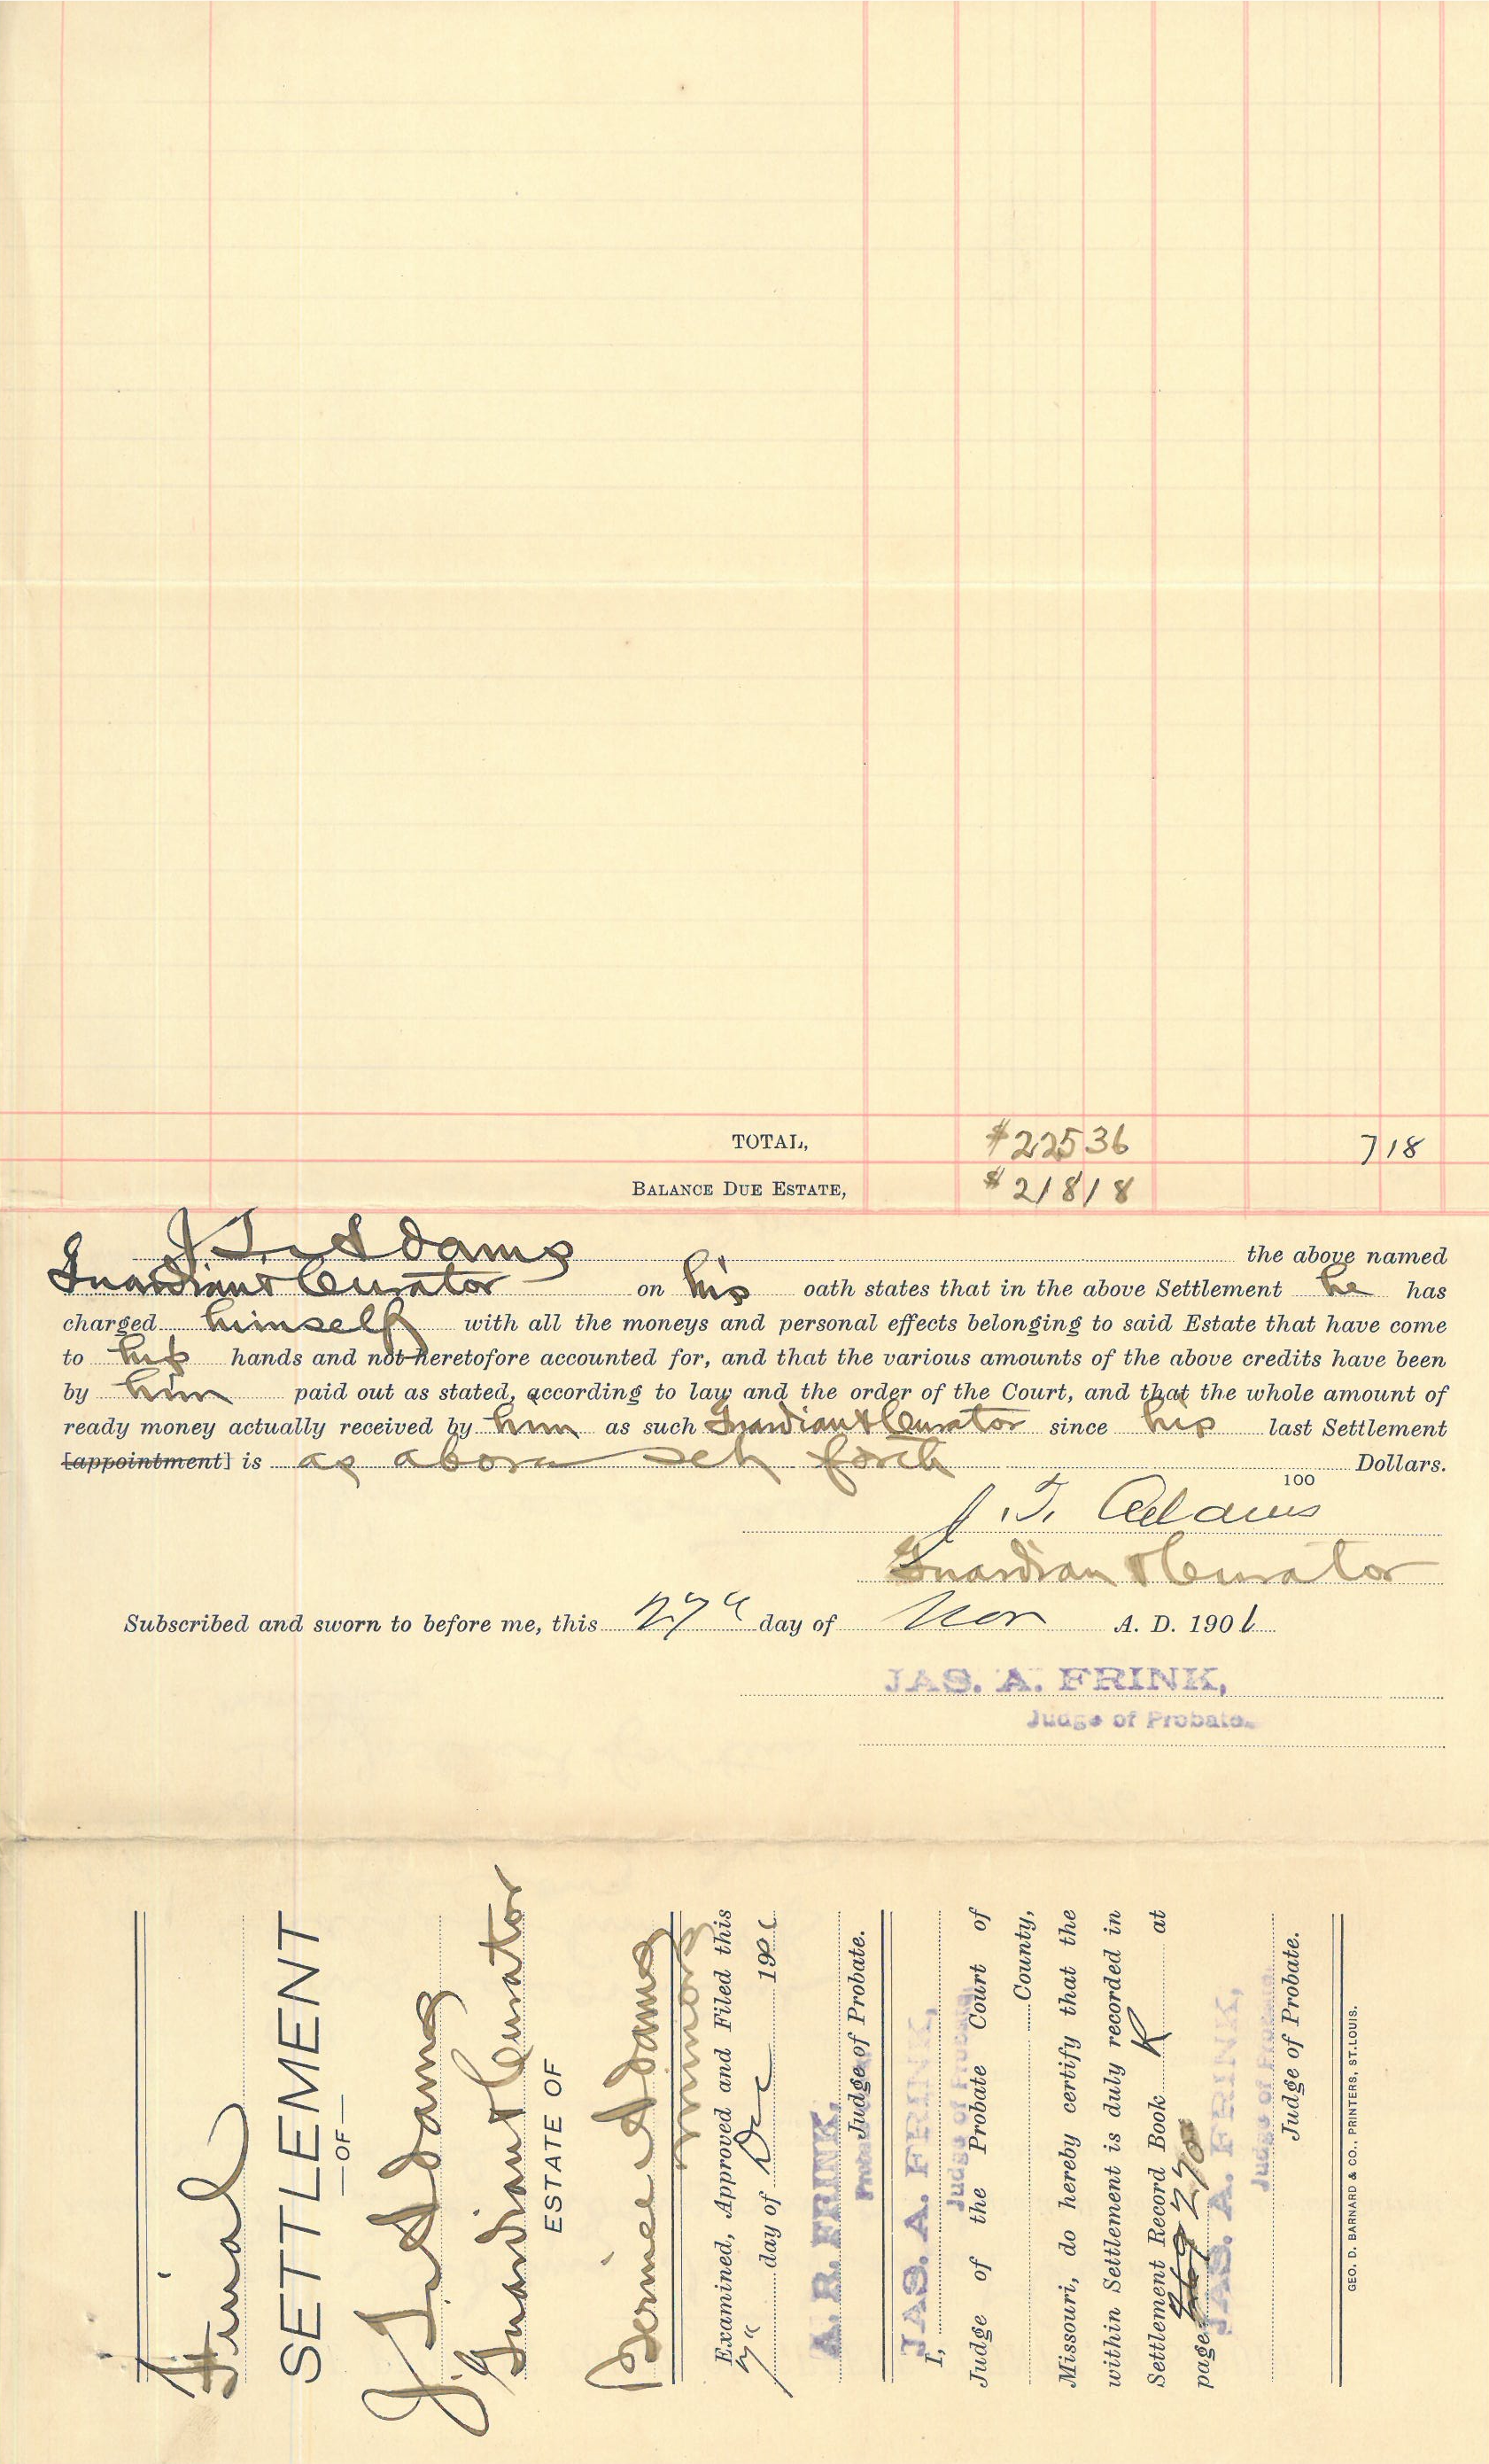 TOTAL, $225 36 7 18
BALANCE DUE ESTATE, $218 18
J. T. Adams the above named
Guardian & Curator on his oath states that in the above Settlement he has
charged himself with all the moneys and personal effects belonging to said Estate that have come
to his hands and not heretofore accounted for, and that the various amounts of the above credits have been
by him paid out as stated, according to law and the order of the Court, and that the whole amount of
ready money actually received by him as such Guardian & Curator since his last Settlement
[appointment] is as above set forth Dollars.
100
J. T. Adams
Guardian & Curator
Subscribed and sworn to before me, this 27" day of Nov A. D. 1901
JAS. A. FRINK,
Judge of Probate.
Final
SETTLEMENT
—OF—
J. T. Adams
Guardian & Curator
ESTATE OF
Bernice Adams
minors
Examined, Approved and Filed this
7" day of Dec 190
A. B. FRINK,
Judge of Probate.
JAS. A. FRINK,
I,
Judge of Probate,
Judge of the Probate Court of
County,
Missouri, do hereby certify that the
within Settlement is duly recorded in
Settlement Record Book K at
page 269 270
JAS. A. FRINK,
Judge of Probate.
Judge of Probate.
GEO. D. BARNARD & CO., PRINTERS, ST. LOUIS.